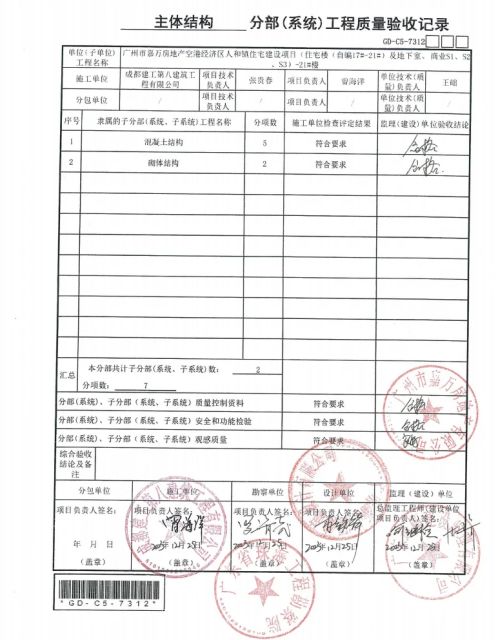 主体结构 分部(系统)工程质量验收记录
GD-C5-7312
单位(子单位)工程名称 广州市嘉万房地产空港经济区人和镇住宅建设项目(住宅楼(自编17#-21#)及地下室、商业S1、S2、S3)-21#楼
施工单位 成都建工第八建筑工程有限公司 项目技术负责人 张贵春 项目负责人 曾海洋 单位技术(质量)负责人 王嵋
分包单位 / 项目技术负责人 / 项目负责人 / 单位技术(质量)负责人 /
序号 隶属的子分部(系统、子系统)工程名称 分项数 施工单位检查评定结果 监理(建设)单位验收结论
1 混凝土结构 5 符合要求 合格
2 砌体结构 2 符合要求 合格
汇总 本分部共计子分部(系统、子系统)数: 2
分项数: 7
分部(系统)、子分部(系统、子系统)质量控制资料 符合要求 合格
分部(系统)、子分部(系统、子系统)安全和功能检验 符合要求 合格
分部(系统)、子分部(系统、子系统)观感质量 符合要求
综合验收结论及备注
分包单位 施工单位 勘察单位 设计单位 监理(建设)单位
项目负责人签名: 项目负责人签名: 项目负责人签名: 项目负责人签名: 总监理工程师(建设单位项目负责人)签名:
曾海洋
年 月 日 2025年12月25日 2025年12月25日 2025年12月25日 2025年12月25日
(盖章) (盖章) (盖章) (盖章) (盖章)
*GD-C5-7312*